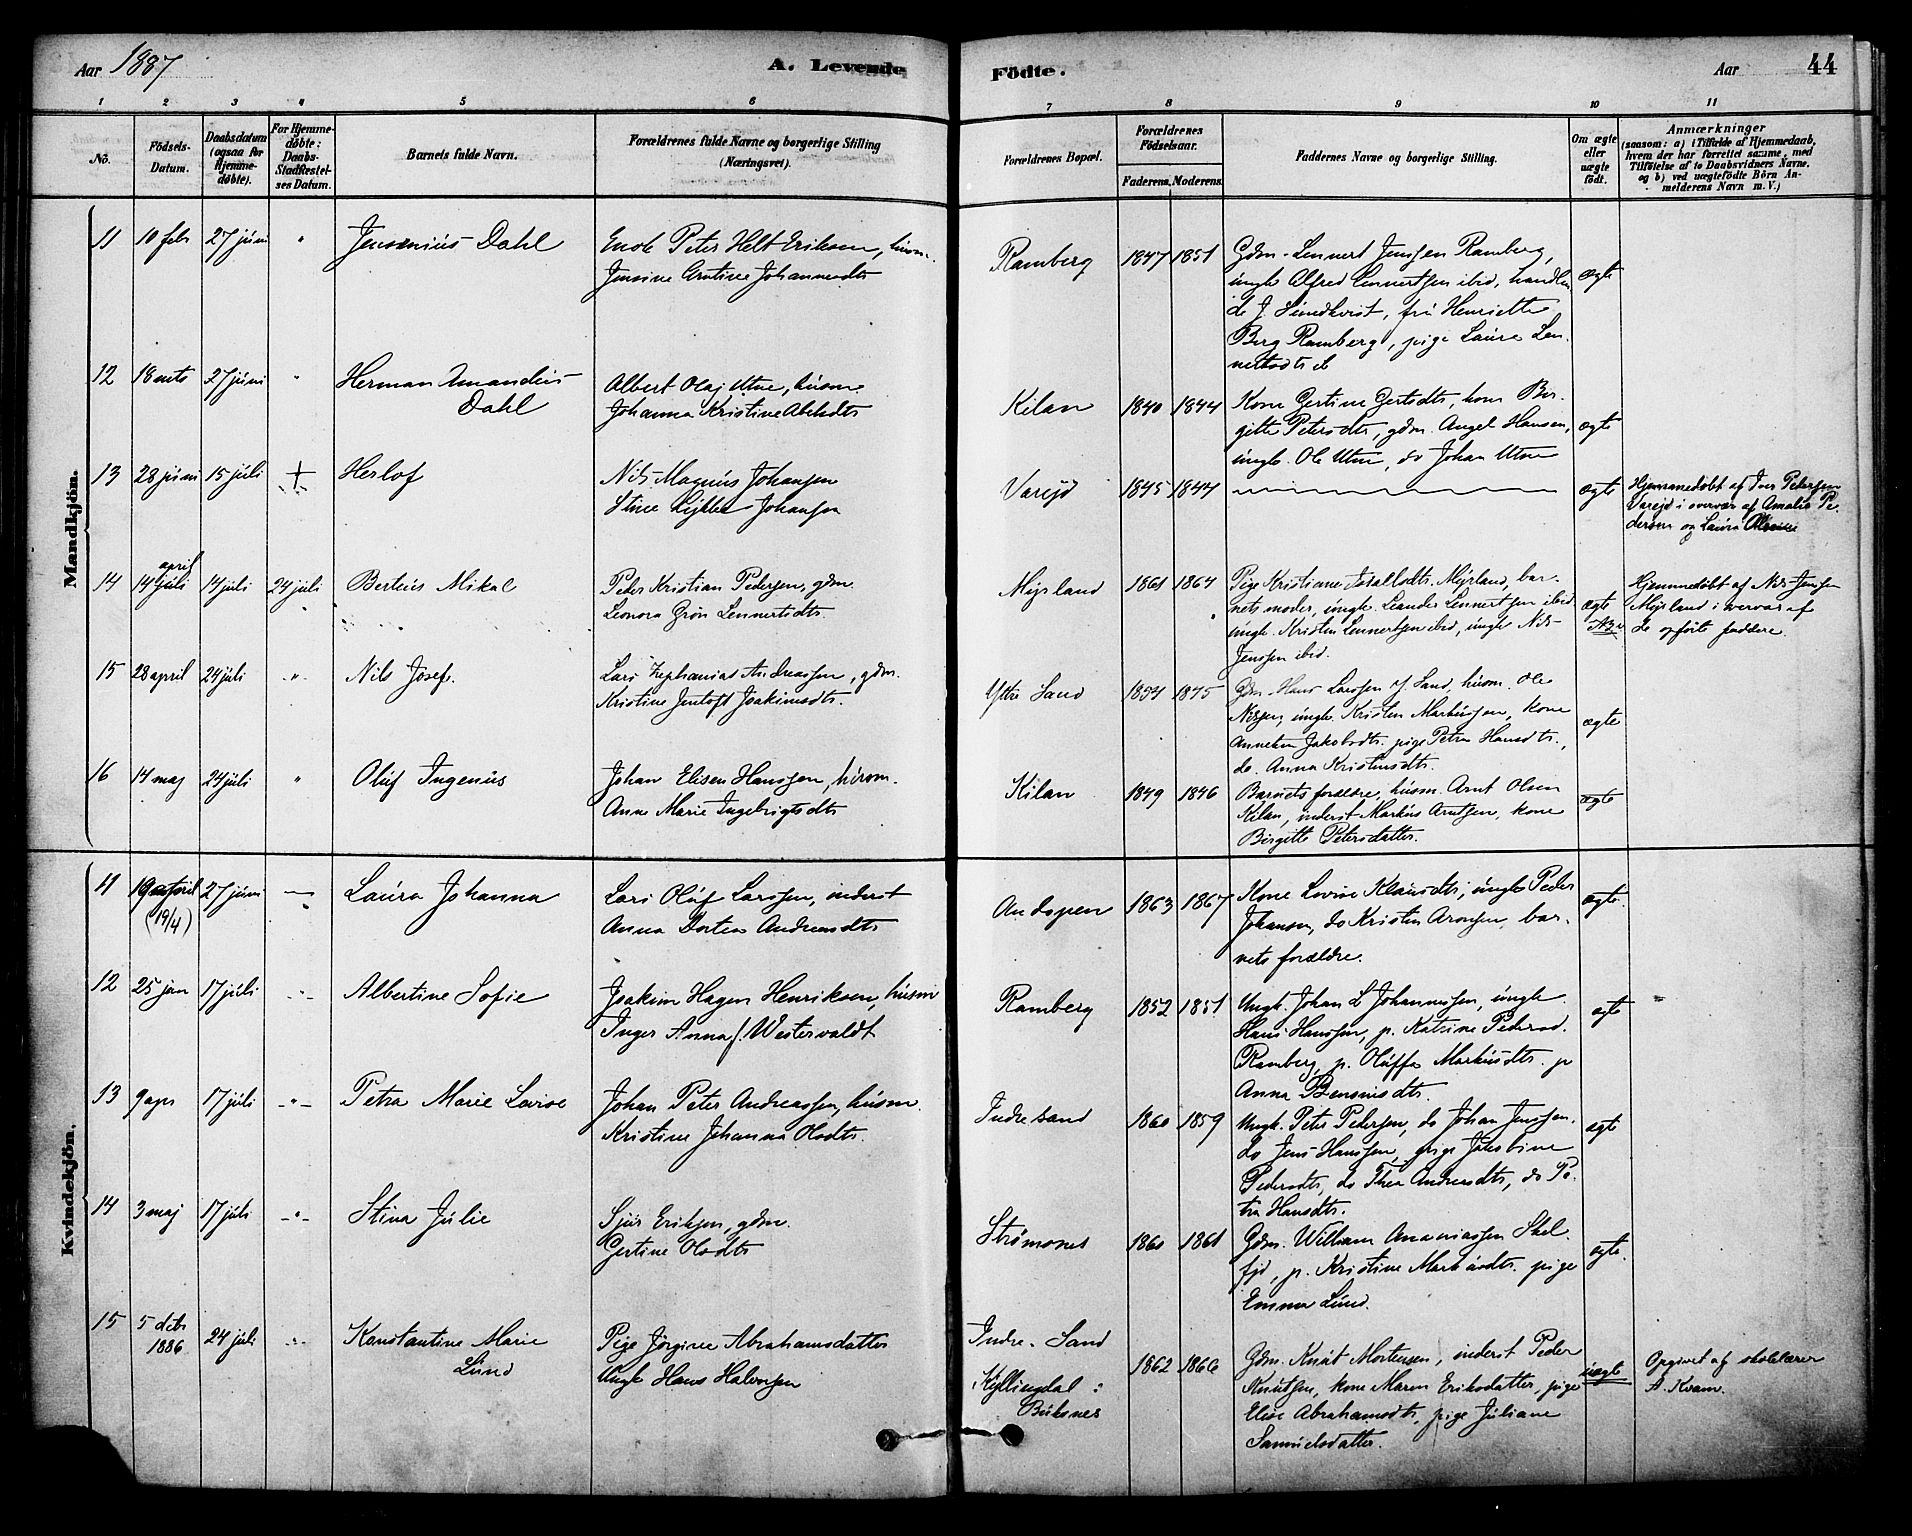 Aar 1887
A. Levende Födte.
Aar 44
1 2 3 4 5 6 7 8 9 10 11
No.
Födsels-Datum.
Daabsdatum (ogsaa for Hjemme-döbte).
For Hjemme-döbte: Daabs-Stadfæstel-ses Datum.
Barnets fulde Navn.
Forældrenes fulde Navne og borgerlige Stilling (Næringsvei).
Forældrenes Bopæl.
Forældrenes Födselsaar.
Faderens. Moderens.
Faddernes Navne og borgerlige Stilling.
Om ægte eller uægte født.
Anmærkninger
(saasom: a) i Tilfælde af Hjemmedaab, hvem der har forrettet samme, med Tilföielse af to Daabsvidners Navne, og b) ved uægtefödte Börn An-melderens Navn m. V.)
Mandkjön.
11 10 febr 27 juni " Jensenius Dahl
Enok Peter Helt Eriksen, husm.
Jensine Arntine Johannesdtr
Ramberg 1847 1851
Gdm. Lennert Jenssen Ramberg,
ungk Alfred Lennertsen ibid, handlen
de J. Sundkvist, fru Henriette
Berg Ramberg, pige Laura Len-
nertsdtr d
ægte
12 18 mts 27 juni " Herman Amandeus
Dahl
Albert Olaj Utne, husm
Johanna Kristine
Kilan 1840 1844
Kone Gertine Gertsdtr, kone Bir-
gitte Petersdtr, gdm. Angel Hansen,
ungk. Ole Utne, do Johan Utne
ægte
13 28 juni 15 juli + Herlof
Nils Magnus Johansen
Stine Johansen
Varejd 1845 1844 ægte
Hjemmedøbt af Iver Petersen
Varejd i overvær af Amalie Pe-
dersen og Laura
14 april
14 juli 14 juli 24 juli Berteus Mikal
Peder Kristian Pedersen, gdm.
Leonora Grøn Lennertsdtr.
Myrland 1861 1864
Pige Kristiane Myrland, bar-
nets moder, ungk. Leander Lennertsen ibid
ungk. Kristen Lennertsen ibid, ungk Nils
Jenssen ibid.
ægte
Hjemmedøbt af Nils Jenssen
Myrland i overvær af
de opførte faddere.
15 28 april 24 juli " Nils Josef.
Lars Zephanias Andreassen, gdm.
Kristine Jentoft Joakimsdtr.
Yttre Sand 1854 1845
Gdm. Hans Larssen Y. Sand, husm. Ole
Nilsen, ungk. Kristen Markussen, kone
Anneken Jakobsdtr. pige Petra Hansdtr.,
do. Anna Kristensdtr.
ægte
16 14 maj 24 juli " Oluf Ingenius
Johan Elisen Hanssen, husm.
Anne Marie Ingebrigtsdtr
Kilan 1849 1846
Barnets forældre, husm. Arnt Olsen
Kilan, inderst Markus Arntsen, kone
Birgitte Petersdatter.
ægte
Kvindekjön.
11 19 april
(19/4) 27 juni Laura Johanna
Lars Oluf Larssen, inderst
Anna Dortea Andreasdtr
Andopen 1863 1867
Kone Lovise Klausdtr, ungk Peder
Johansen, do Kristen Aronsen, bar-
nets forældre.
ægte.
12 25 jan 17 juli Albertine Sofie
Joakim Hagen Henriksen, husm
Inger Anna f. Westervaldt
Ramberg 1852 1851
Ungk. Johan L Johannessen, ungk.
Hans Hanssen, p. Katrine Pedersd.
Ramberg, p. Oluffa Markusdtr. p
Anna Bensnisdtr.
egte
13 9 apr 17 juli " Petra Marie Lovise
Johan Peter Andreassen, husm.
Kristine Johanna Olsdtr.
Indresand 1860 1859
Ungk. Peter Pedersen, do Johan Jenssen,
do Jens Hanssen, pige Jakobine
Pedersdtr, do Thea Andreasdtr, do Pe-
tra Hansdtr.
egte
14 3 maj 17 juli " Stina Julie
Sjur Eriksen, gdm.
Gertine Olsdtr
Strømsnes 1860 1861
Gdm. William Ananiassen Skel-
fjd, p. Kristine Markusdtr. pige
Emma Lund.
egte.
15 5 decbr
1886 24 juli Konstantine Marie
Lund
Pige Jørgine Abrahamsdatter
Ungk Hans Halvorsen
Indre-Sand
Kyllingdal:
Buksnes
1862 1866
Gdm. Knut Mortensen, inderst Peder
Knutsen, kone Maren Eriksdatter, pige
Elise Abrahamsdtr, pige Juliane
Samuelsdatter.
uægte
Opgivet af skolelærer
A. Kvam.